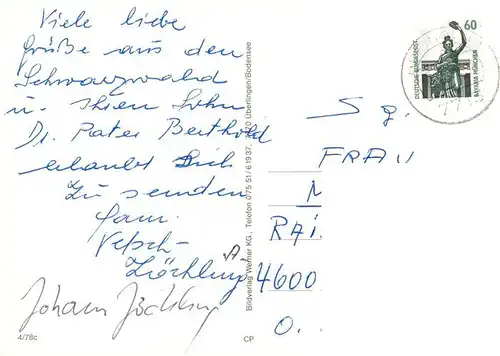 Viele liebe
Grüße aus dem
Schwarzwald
u. Ihren Sohn
Dr. Pater Berthold
erlaubt sich
zu senden
Fam.
60
DEUTSCHE BUNDESPOST
BAVARIA MÜNCHEN
S g.
FRAU
RAI.
4600
O..
Bildverlag Werner KG., Telefon 075 51/6 19 37, Überlingen/Bodensee
Johann
4/78c
CP